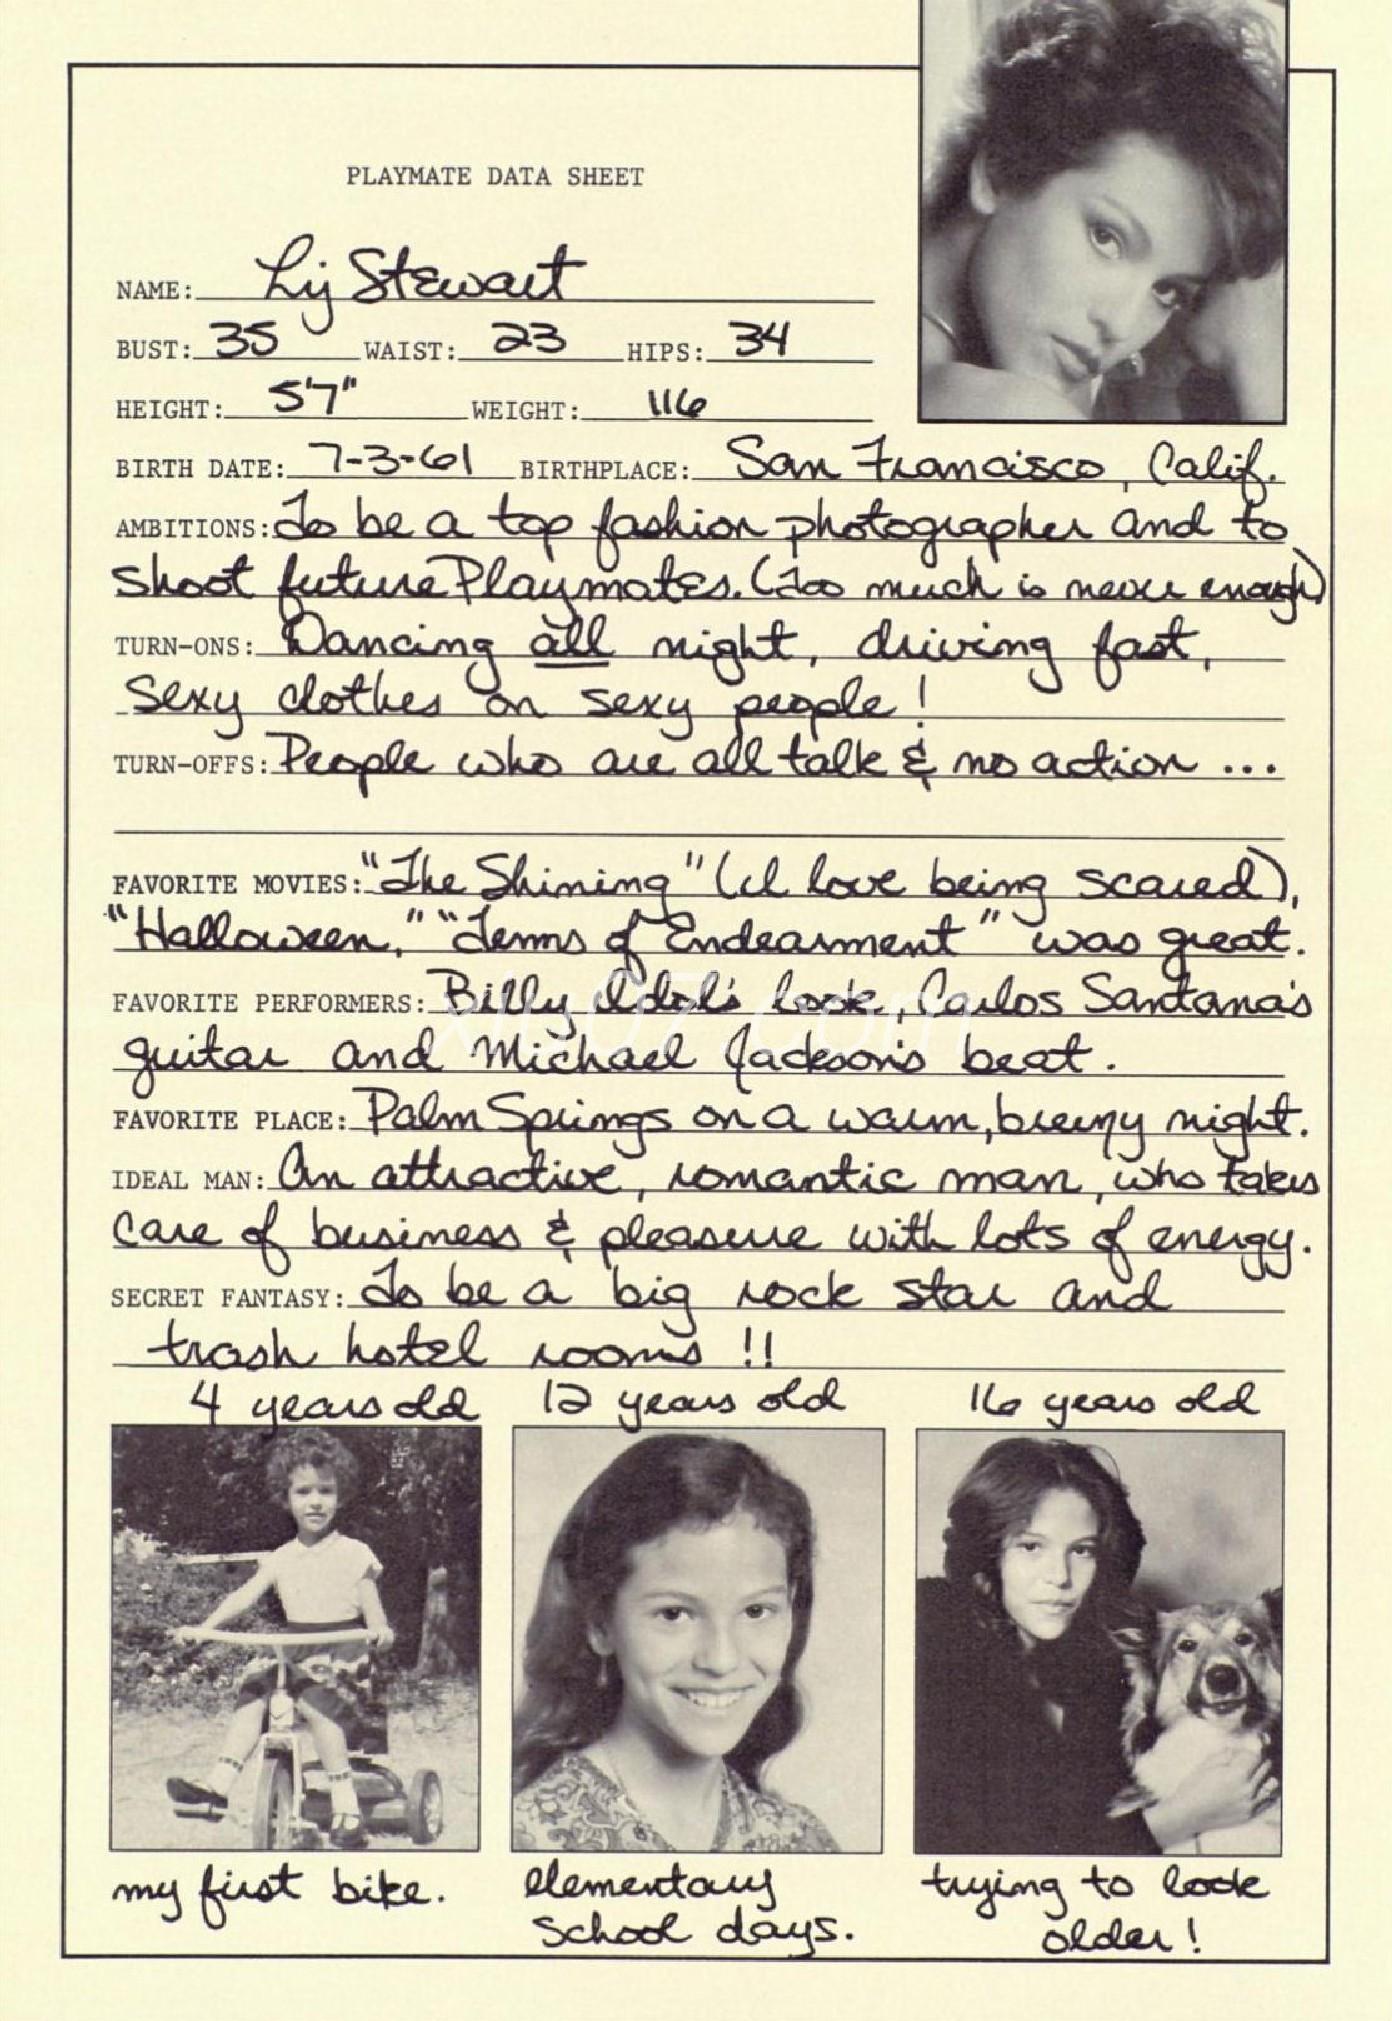 PLAYMATE DATA SHEET
NAME: Liz Stewart
BUST: 35 WAIST: 23 HIPS: 34
HEIGHT: 5'7" WEIGHT: 116
BIRTH DATE: 7-3-61 BIRTHPLACE: San Francisco, Calif.
AMBITIONS: To be a top fashion photographer and to
shoot future Playmates. (Too much is never enough)
TURN-ONS: Dancing all night, driving fast,
sexy clothes on sexy people!
TURN-OFFS: People who are all talk & no action ...
FAVORITE MOVIES: "The Shining" (I love being scared),
"Halloween," "Terms of Endearment" was great.
FAVORITE PERFORMERS: Billy Idol's look, Carlos Santana's
guitar and Michael Jackson's beat.
FAVORITE PLACE: Palm Springs on a warm, breezy night.
IDEAL MAN: An attractive, romantic man, who takes
care of business & pleasure with lots of energy.
SECRET FANTASY: To be a big rock star and
trash hotel rooms!!
4 years old 12 years old 16 years old
my first bike. elementary trying to look
school days. older!